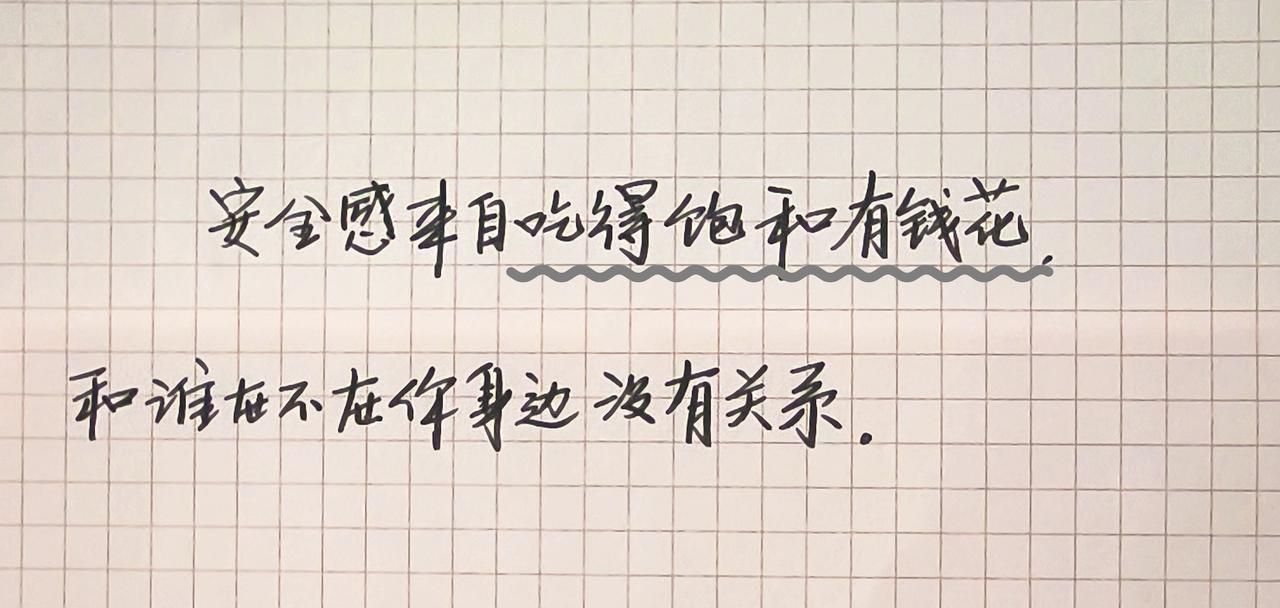 安全感来自吃得饱和有钱花，
和谁在不在你身边没有关系.